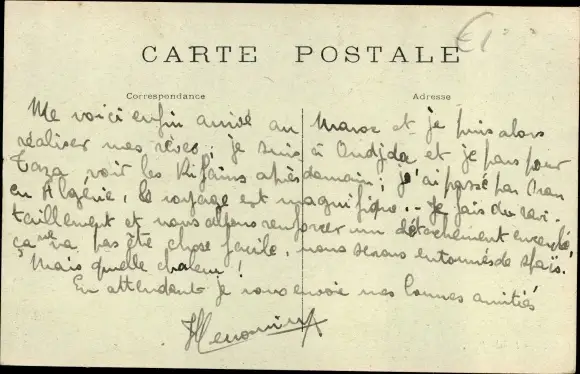 €1
CARTE POSTALE
Correspondance Adresse
Me voici enfin arrivé au Maroc et je puis alors
réaliser mes rêves ; je suis à Oudjda et je pars pour
Taza voir les Rifains après demain ; j'ai passé par Oran
en Algérie, le voyage est magnifique. Je fais du ravi-
taillement et nous allons renforcer un détachement encerclé,
ça ne va pas être chose facile, nous serons entourés de spahis.
Mais quelle chaleur !
En attendant je vous envoie mes bonnes amitiés